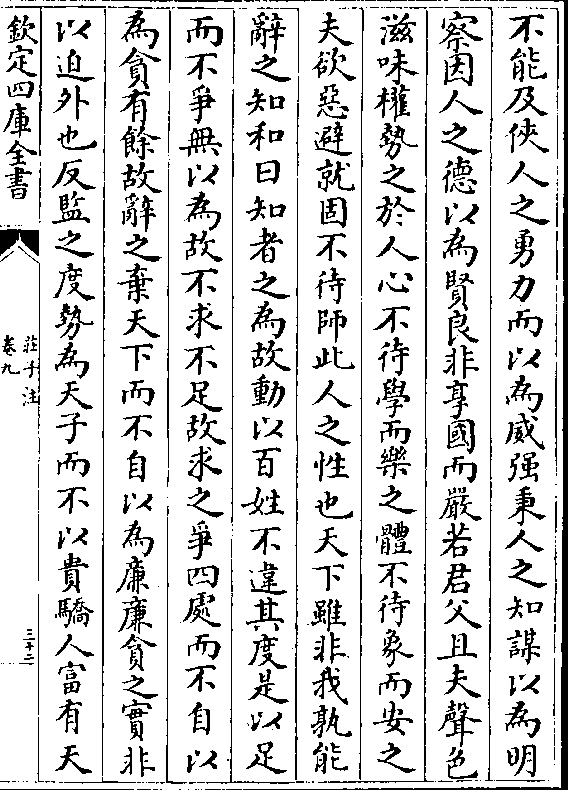 不能及俠人之勇力而以為威强秉人之知謀以為明
察因人之德以為賢良非享國而嚴若君父且夫聲色
滋味權勢之於人心不待學而樂之體不待象而安之
夫欲惡避就固不待師此人之性也天下雖非我孰能
辭之知和曰知者之為故動以百姓不違其度是以足
而不爭無以為故不求不足故求之爭四處而不自以
為貪有餘故辭之棄天下而不自以為廉廉貪之實非
以迫外也反監之度勢為天子而不以貴驕人富有天
欽定四庫全書
莊子注
卷九
三十二